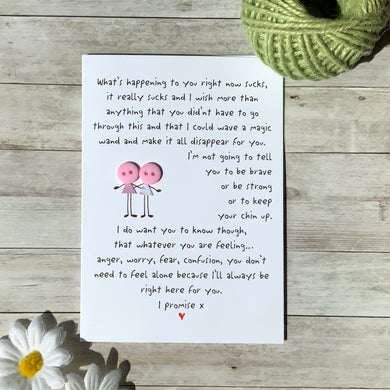 What's happening to you right now sucks,
it really sucks and I wish more than
anything that you did'nt have to go
through this and that I could wave a magic
wand and make it all disappear for you.
I'm not going to tell
you to be brave
or be strong
or to keep
your chin up.
I do want you to know though,
that whatever you are feeling...
anger, worry, fear, confusion, you don't
need to feel alone because I'll always be
right here for you.
I promise x